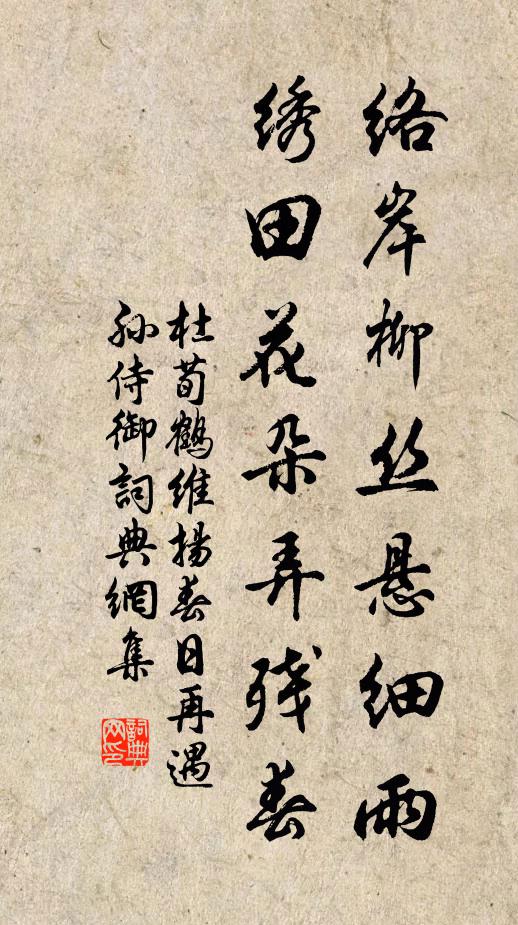 络岸柳丝悬细雨
绣田花朵弄残春
杜荀鹤维扬春日再遇
孙侍御詞典網集
詞典
网印